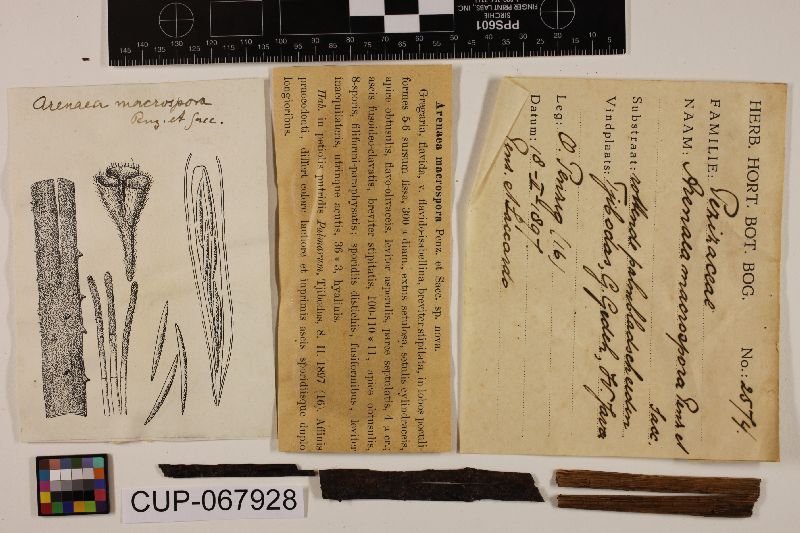 PPS601
SIRCHIE
FINGER PRINT LABS, INC
145 135 125 115 105 95 85 75 65 55 45 35 25 15
Arenaea macrospora
Penz. et Sacc.
Arenaea macrospora Penz. et Sacc. sp. nova.
Gregaria, flavida, v. flavido-isabellina, breviter stipitata, in lobos postuli-
formes 5-6 sursum fissa, 300 μ diam., extus setulosa, setulis cylindraceis,
apice obtusulis, flavo-olivaceis, leviter asperulis, parce septulatis, 4 μ cr.;
ascis fusoideo-clavatis, breviter stipitatis, 100-110 * 11, apice obtusulis,
8-sporis, filiformi-paraphysatis; sporidiis distichis, fusiformibus, leviter
inaequilateris, utrinque acutis, 36 * 3, hyalinis.
Hab. in petiolis putridis Palmarum, Tjibodas, 8. II. 1897 (16). Affinis
praecedenti, differt colore laetiore et inprimis ascis sporidiisque duplo
longioribus.
HERB. HORT. BOT. BOG. No.: 2574.
FAMILIE: Pezizaceae
NAAM: Arenaea macrospora Penz et
Sacc.
Substraat: rottende palmbladscheeden
Vindplaats: Tjibodas, G. Gedeh, W. Java
Leg: O. Penzig (16)
Datum: 8-II-1897
Penz. et Saccardo
CUP-067928